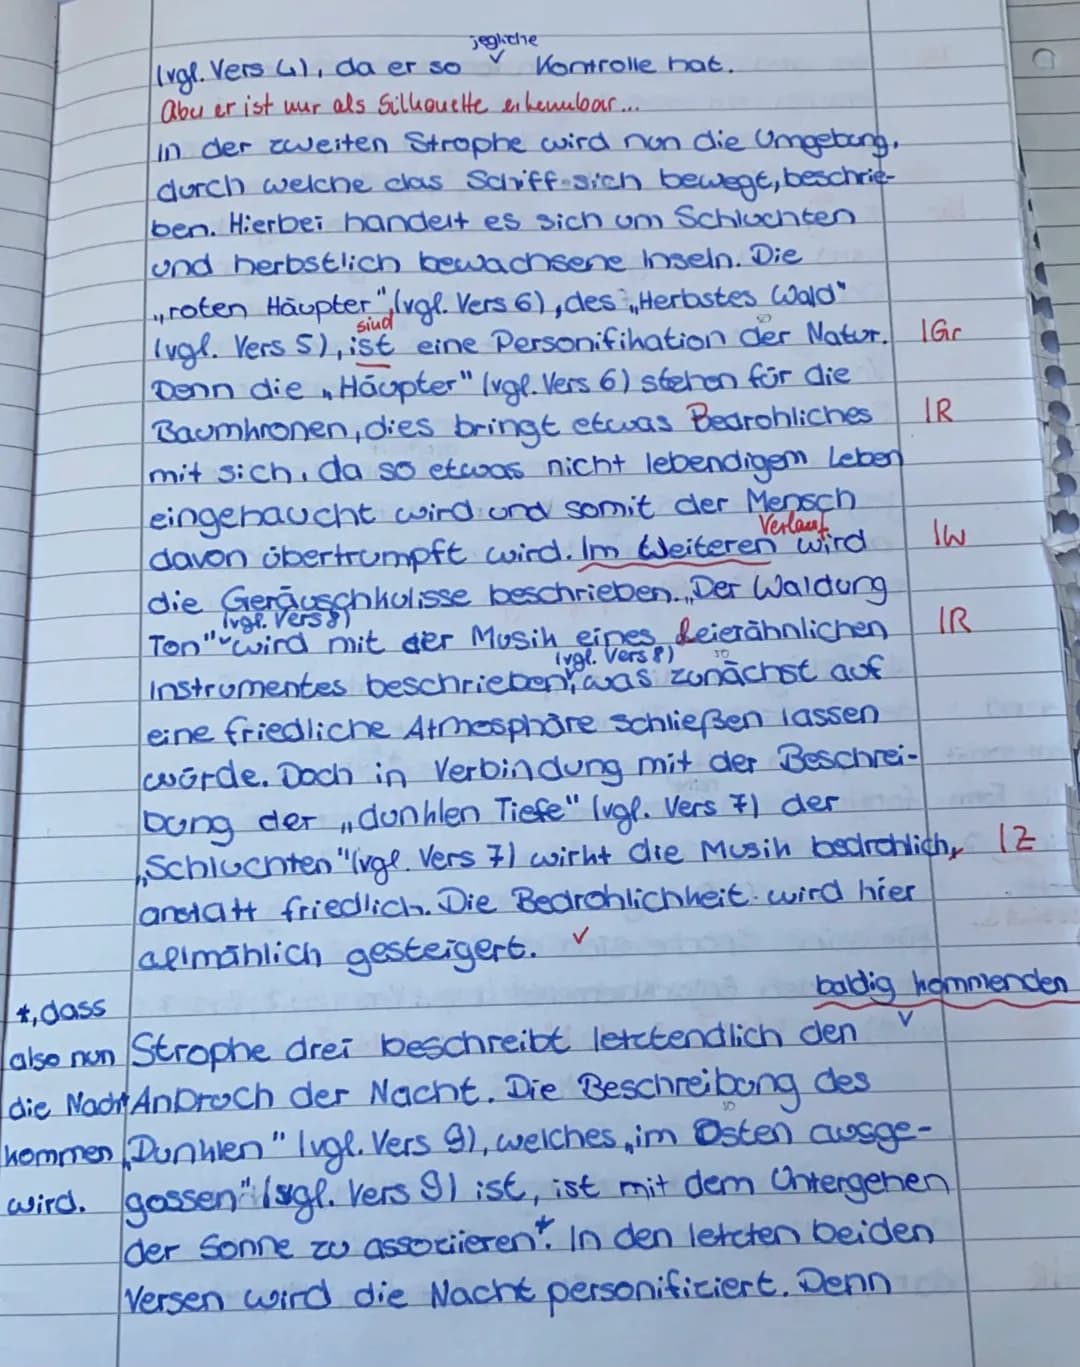 jegliche
(vgl. Vers 4), da er so ˅ Kontrolle hat.
Aber er ist nur als Silhouette erkennbar...
in der zweiten Strophe wird nun die Umgebung,
durch welche das Schiff sich bewegt, beschrie-
ben. Hierbei handelt es sich um Schluchten
und herbstlich bewachsene Inseln. Die
„roten Häupter" (vgl. Vers 6), des „Herbstes Wald"
sind
(vgl. Vers 5), ist eine Personifikation der Natur. IGr
Denn die „Häupter" (vgl. Vers 6) stehen für die
Baumkronen, dies bringt etwas Bedrohliches IR
mit sich, da so etwas nicht lebendigem Leben
eingehaucht wird und somit der Mensch
Verlauf
davon übertrumpft wird. Im Weiteren wird IW
die Geräuschkulisse beschrieben. „Der Waldung
(vgl. Vers 8)
Ton" ˅ wird mit der Musik eines leierähnlichen IR
(vgl. Vers 8)
Instrumentes beschrieben, was zunächst auf
eine friedliche Atmosphäre schließen lassen
würde. Doch in Verbindung mit der Beschrei-
bung der „dunklen Tiefe" (vgl. Vers 7) der
„Schluchten" (vgl. Vers 7) wirkt die Musik bedrohlich, IZ
anstatt friedlich. Die Bedrohlichkeit wird hier
allmählich gesteigert. ✓
baldig kommenden
Strophe drei beschreibt letztendlich den ˅
Anbruch der Nacht. Die Beschreibung des
„Dunklen" (vgl. Vers 9), welches „im Osten ausge-
gossen" (vgl. Vers 9) ist, ist mit dem Untergehen
der Sonne zu assoziieren*. In den letzten beiden
Versen wird die Nacht personifiziert. Denn
*, dass
also nun
die Nacht
kommen
wird.